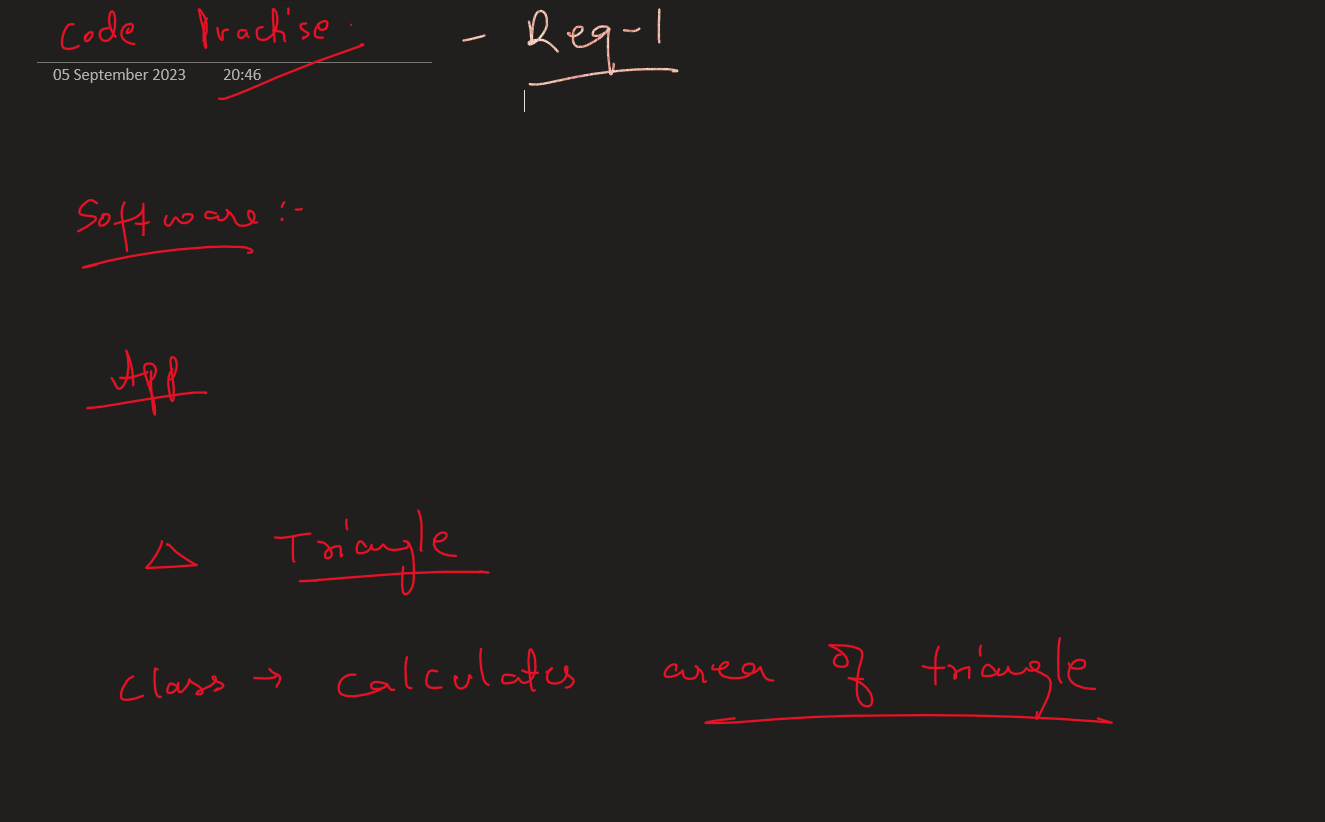 Code Practise. - Req-1
05 September 2023 20:46
Software :-
App
Triangle
class → calculates area of triangle